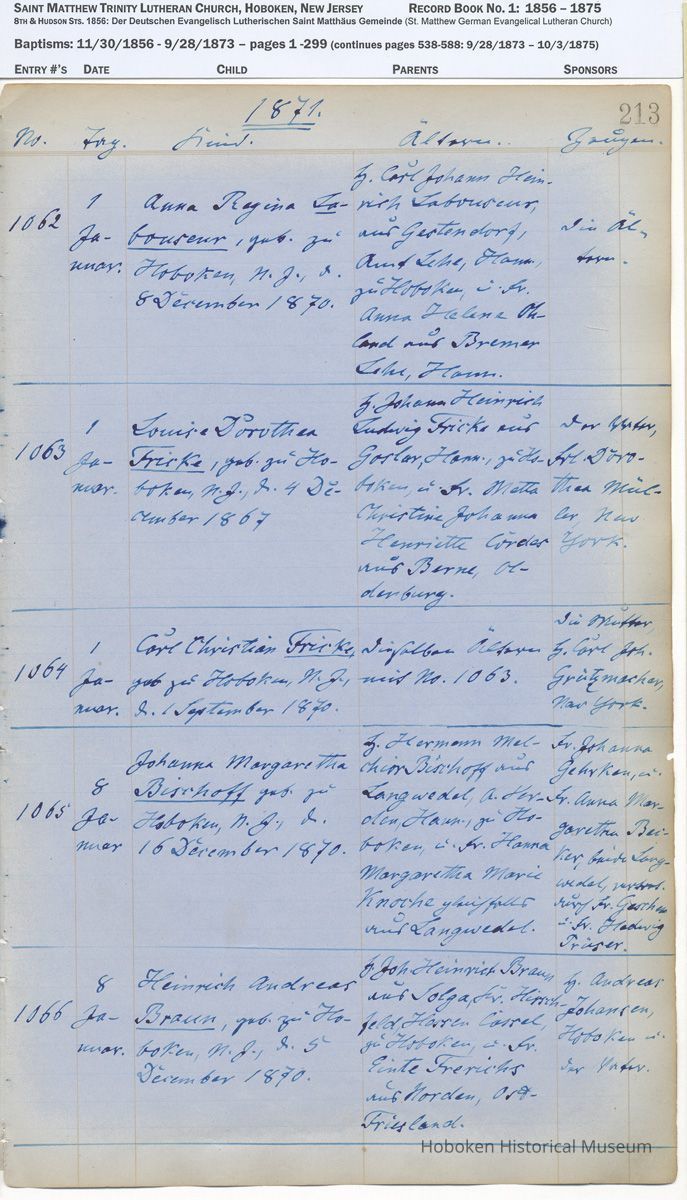 SAINT MATTHEW TRINITY LUTHERAN CHURCH, HOBOKEN, NEW JERSEY RECORD BOOK NO. 1: 1856 – 1875
8TH & HUDSON STS. 1856: Der Deutschen Evangelisch Lutherischen Saint Matthäus Gemeinde (St. Matthew German Evangelical Lutheran Church)
Baptisms: 11/30/1856 - 9/28/1873 – pages 1 -299 (continues pages 538-588: 9/28/1873 – 10/3/1875)
ENTRY #'S DATE CHILD PARENTS SPONSORS
1871.
213
No. Tag. Kind. Ältern. Zeugen.
1062
1
Ja-
nuar.
Anna Regina La-
bouseur, geb. zu
Hoboken, N. J., d.
8 December 1870.
H. Carl Johann Hein-
rich Labouseur,
aus Gestendorf,
Amt Lehe, Hann.,
zu Hoboken, u. Fr.
Anna Helene Oh-
land aus Bremer
Lehe, Hann.
Die Äl-
tern.
1063
1
Ja-
nuar.
Louise Dorothea
Fricke, geb. zu Ho-
boken, N. J., d. 4 De-
cember 1867
H. Johann Heinrich
Ludwig Fricke aus
Goslar, Hann., zu Ho-
boken, u. Fr. Metta
Christine Johanna
Henriette Cordes
aus Berne, Ol-
denburg.
Der Vater,
Frl. Doro-
thea Mül-
ler, New
York.
1064
1
Ja-
nuar.
Carl Christian Fricke,
geb zu Hoboken, N. J.,
d. 1 September 1870.
Dieselben Ältern
wie No. 1063.
Die Mutter,
H. Carl Joh.
Grützmacher,
New York.
1065
8
Ja-
nuar
Johanna Margaretha
Bischoff geb. zu
Hoboken, N. J., d.
16 December 1870.
H. Hermann Mel-
chior Bischoff aus
Langwedel, A. Ver-
den, Hann., zu Ho-
boken, u. Fr. Hanna
Margaretha Marie
Knoche gleichfalls
aus Langwedel.
Fr. Johanna
Gehrken, u.
Fr. Anna Mar-
garetha Bei-
ker, beide Lang-
wedel, vertret.
durch Fr. Geschen
u. Fr. Hedwig
1066
8
Ja-
nuar.
Heinrich Andreas
Braun, geb. zu Ho-
boken, N. J., d. 5
December 1870.
H. Joh Heinrich Braun
aus Solga, Kr. Hirsch-
feld Hessen Cassel,
zu Hoboken, u. Fr.
Frerichs
aus Norden, Ost-
Friesland.
H. Andreas
Johansen,
Hoboken u.
der Vater.
Hoboken Historical Museum